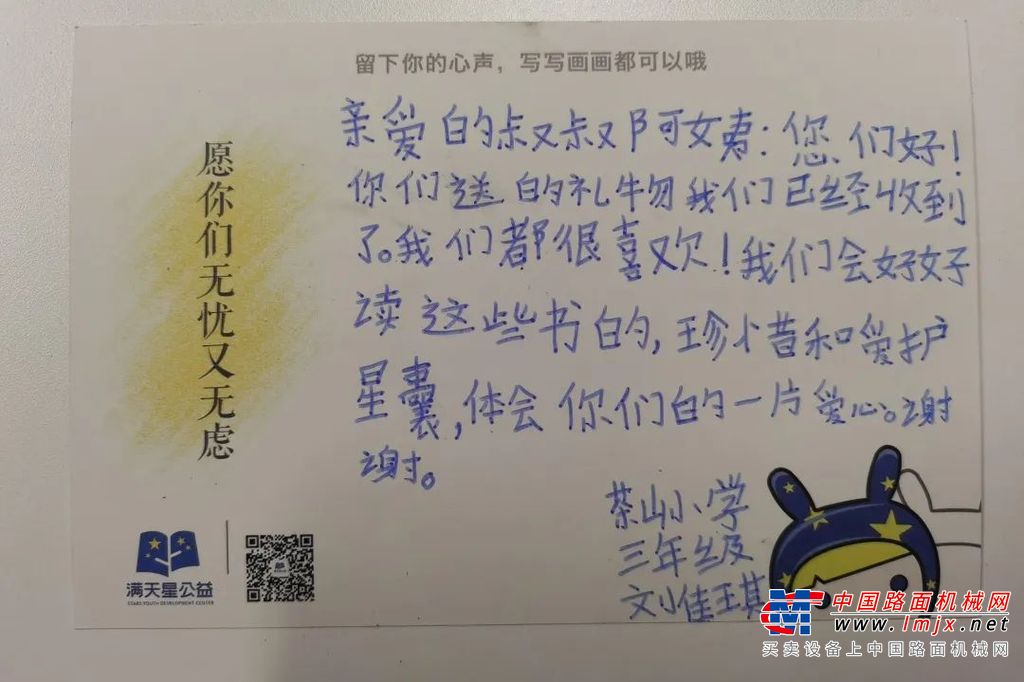 留下你的心声，写写画画都可以哦
亲爱的叔叔阿姨：您们好！
你们送的礼物我们已经收到
了。我们都很喜欢！我们会好好
读这些书的，珍惜和爱护
星囊，体会你们的一片爱心。谢
谢。
茶山小学
三年级
文惟琪
愿你们无忧又无虑
满天星公益
STARS YOUTH DEVELOPMENT CENTER
中国路面机械网
www.lmjx.net
买卖设备上中国路面机械网